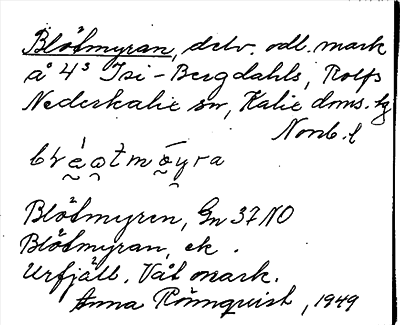 Blötmyran, delv. odl. mark
å 4³ Isi-Bergdahls, Rolfs
Nederkalix sn, Kalix doms. tg
Norrb. l
Blötmyren, Gn 37 NO
Blötmyran, ek.
Urfjäll. Våt mark.
Anna Rönnquist, 1949